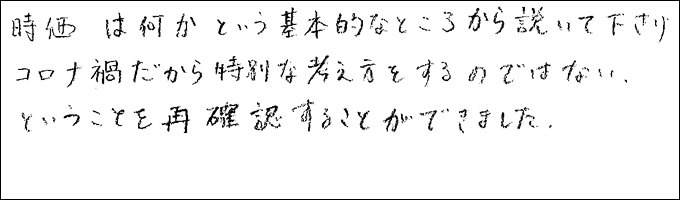 時価は何かという基本的なところから説いて下さり
コロナ禍だから特別な考え方をするのではない、
ということを再確認することができました。